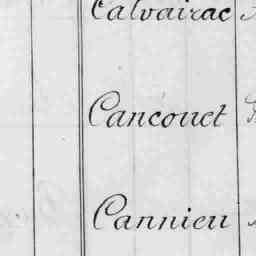 Calvairac
Cancouet
Cannieu